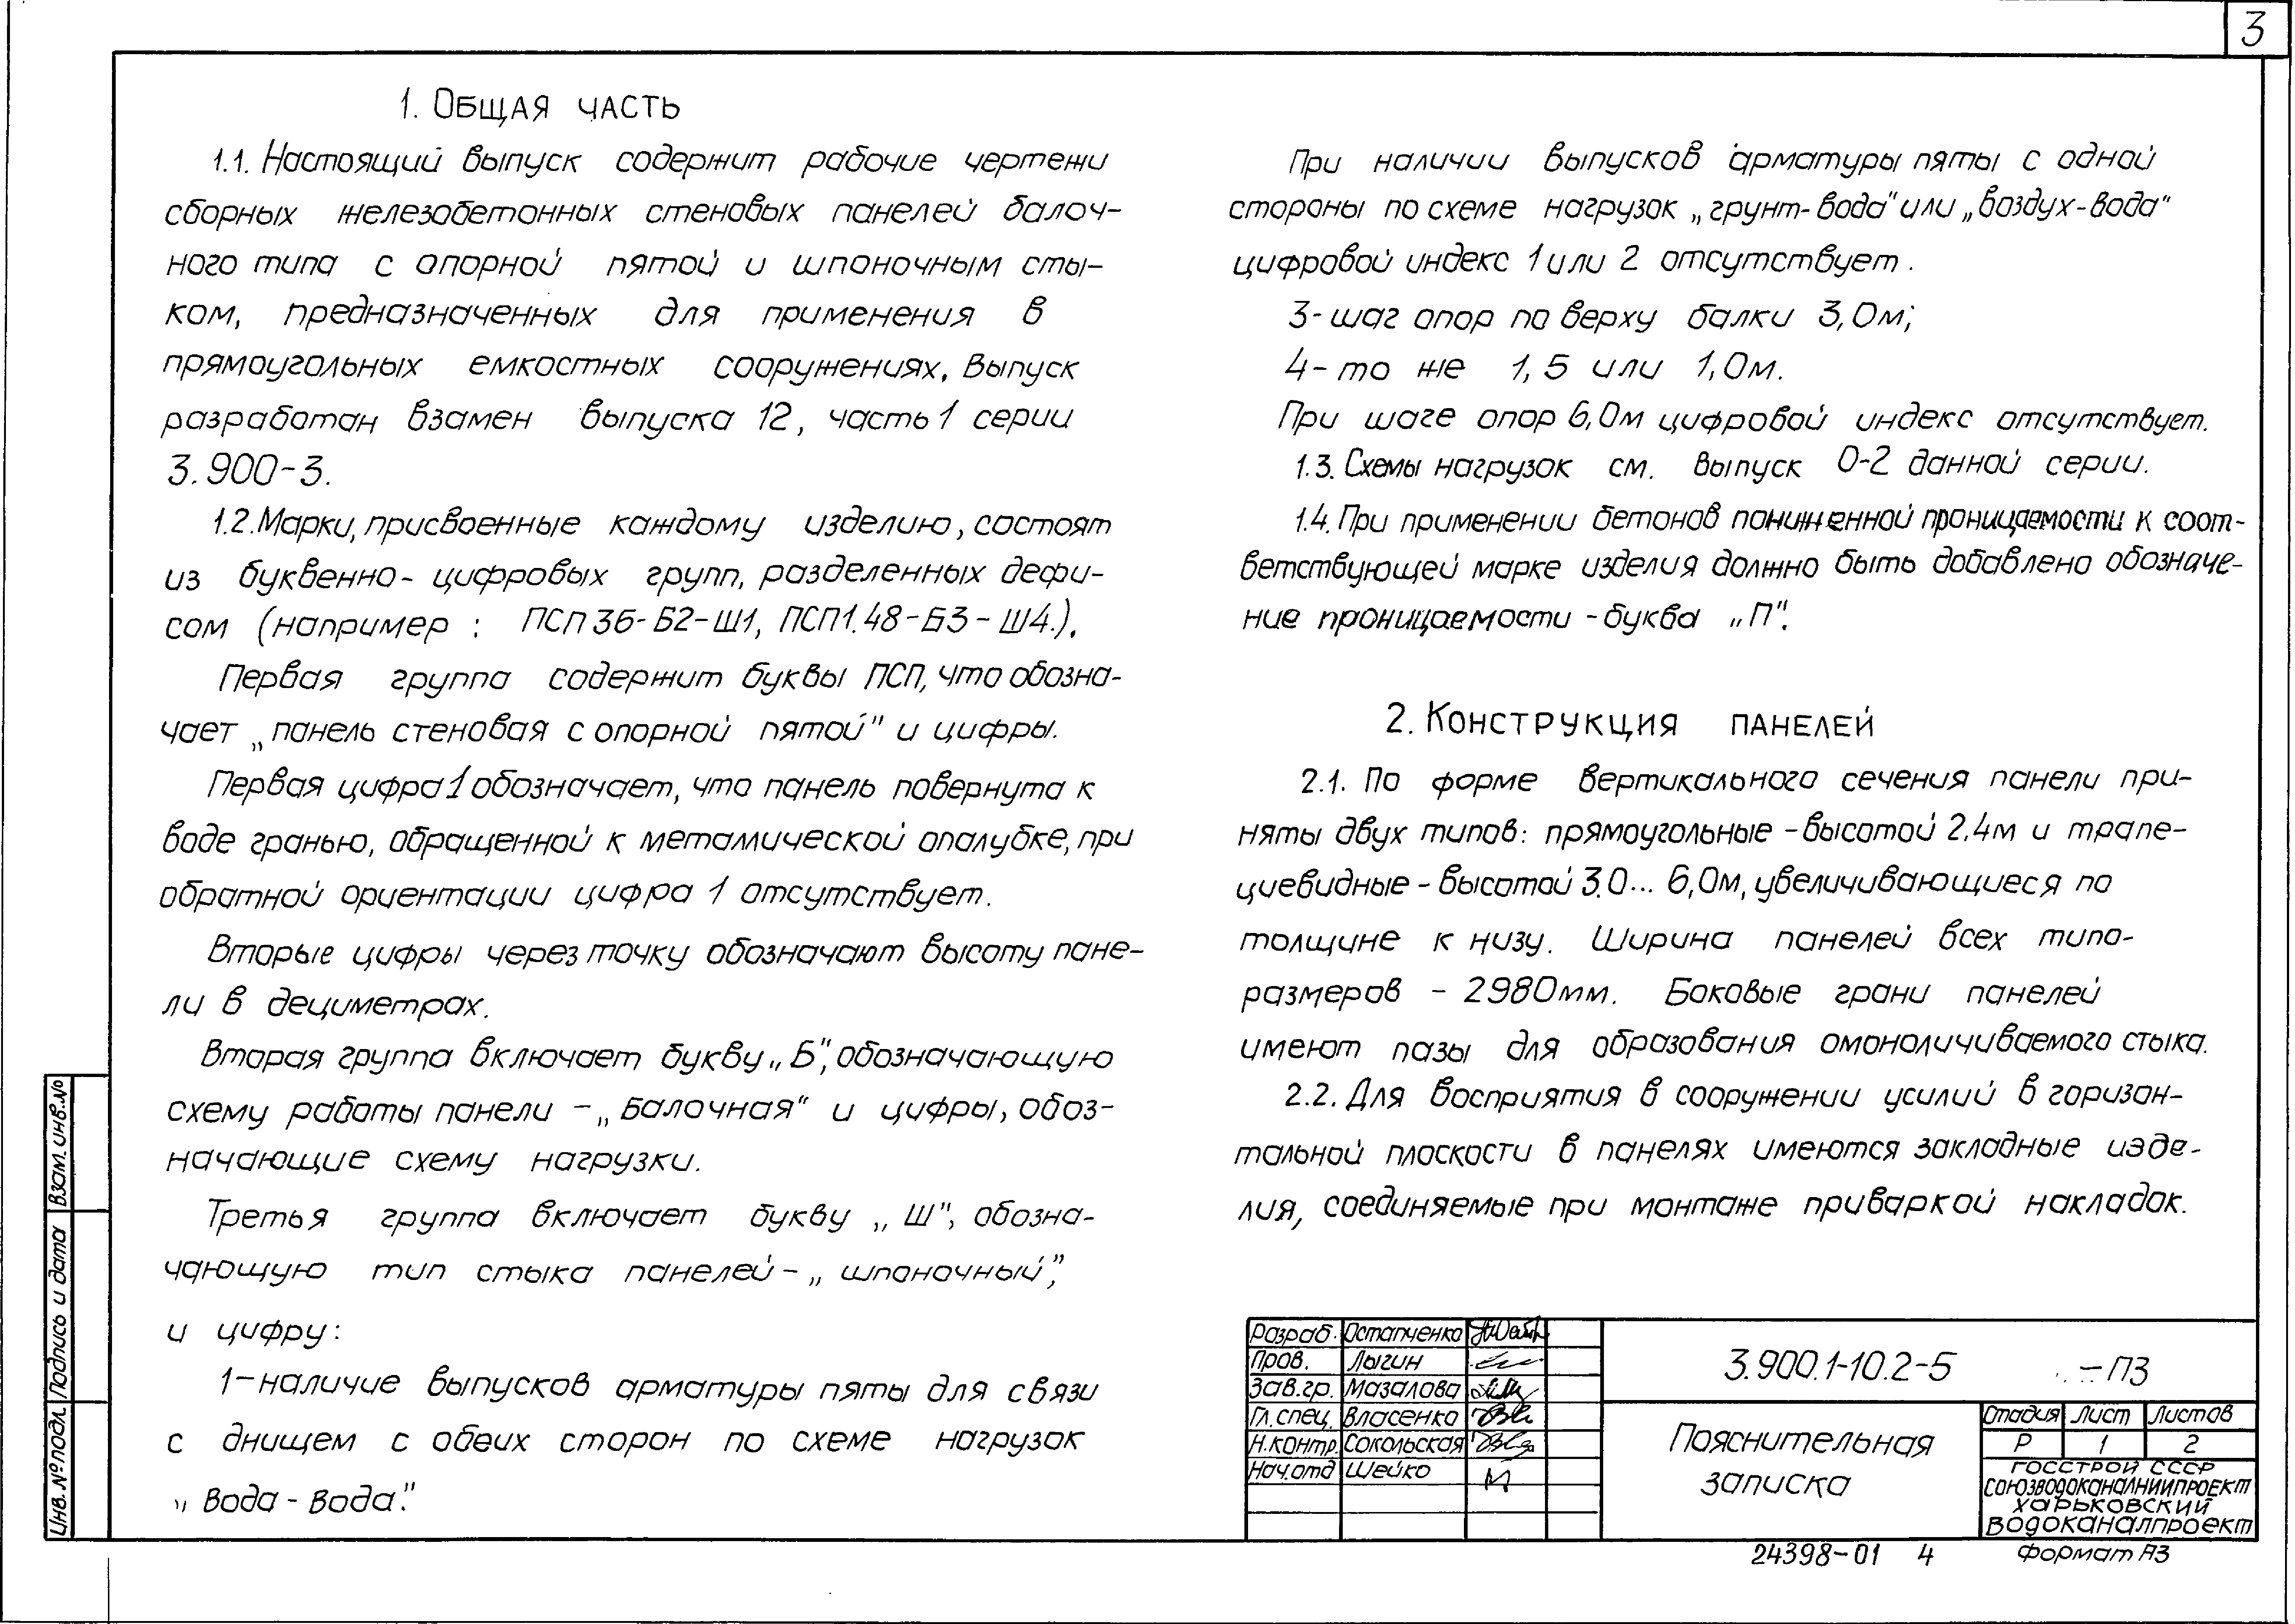 3
1. Общая часть
1.1. Настоящий выпуск содержит рабочие чертежи
сборных железобетонных стеновых панелей балоч-
ного типа с опорной пятой и шпоночным сты-
ком, предназначенных для применения в
прямоугольных емкостных сооружениях. Выпуск
разработан взамен выпуска 12, часть 1 серии
3.900-3.
1.2. Марки, присвоенные каждому изделию, состоят
из буквенно-цифровых групп, разделенных дефи-
сом (например: ПСП 36-Б2-Ш1, ПСП1.48-Б3-Ш4.).
Первая группа содержит буквы ПСП, что обозна-
чает „панель стеновая с опорной пятой" и цифры.
Первая цифра 1 обозначает, что панель повернута к
воде гранью, обращенной к металлической опалубке, при
обратной ориентации цифра 1 отсутствует.
Вторые цифры через точку обозначают высоту пане-
ли в дециметрах.
Вторая группа включает букву „Б", обозначающую
схему работы панели - „Балочная" и цифры, обоз-
начающие схему нагрузки.
Третья группа включает букву „Ш", обозна-
чающую тип стыка панелей - „шпоночный",
и цифру:
1- наличие выпусков арматуры пяты для связи
с днищем с обеих сторон по схеме нагрузок
„Вода - вода".
При наличии выпусков арматуры пяты с одной
стороны по схеме нагрузок „грунт-вода" или „воздух-вода"
цифровой индекс 1 или 2 отсутствует.
3- шаг опор по верху балки 3,0м;
4- то же 1,5 или 1,0м.
При шаге опор 6,0м цифровой индекс отсутствует.
1.3. Схемы нагрузок см. выпуск 0-2 данной серии.
1.4. При применении бетонов пониженной проницаемости к соот-
ветствующей марке изделия должно быть добавлено обозначе-
ние проницаемости - буква „П".
2. Конструкция панелей
2.1. По форме вертикального сечения панели при-
няты двух типов: прямоугольные - высотой 2,4м и трапе-
циевидные - высотой 3.0... 6,0м, увеличивающиеся по
толщине к низу. Ширина панелей всех типо-
размеров - 2980мм. Боковые грани панелей
имеют пазы для образования омоноличиваемого стыка.
2.2. Для восприятия в сооружении усилий в горизон-
тальной плоскости в панелях имеются закладные изде-
лия, соединяемые при монтаже приваркой накладок.
Инв. № подл. Подпись и дата Взам. инв. №
Разраб. Остапченко
Пров. Лыгин
Зав.гр. Мазалова
Гл.спец. Власенко
Н.контр. Сокольская
Нач.отд Шейко
3.900.1-10.2-5 -ПЗ
Пояснительная
записка
Стадия Лист Листов
Р 1 2
Госстрой СССР
Союзводоканалниипроект
Харьковский
Водоканалпроект
24398-01 4 Формат А3